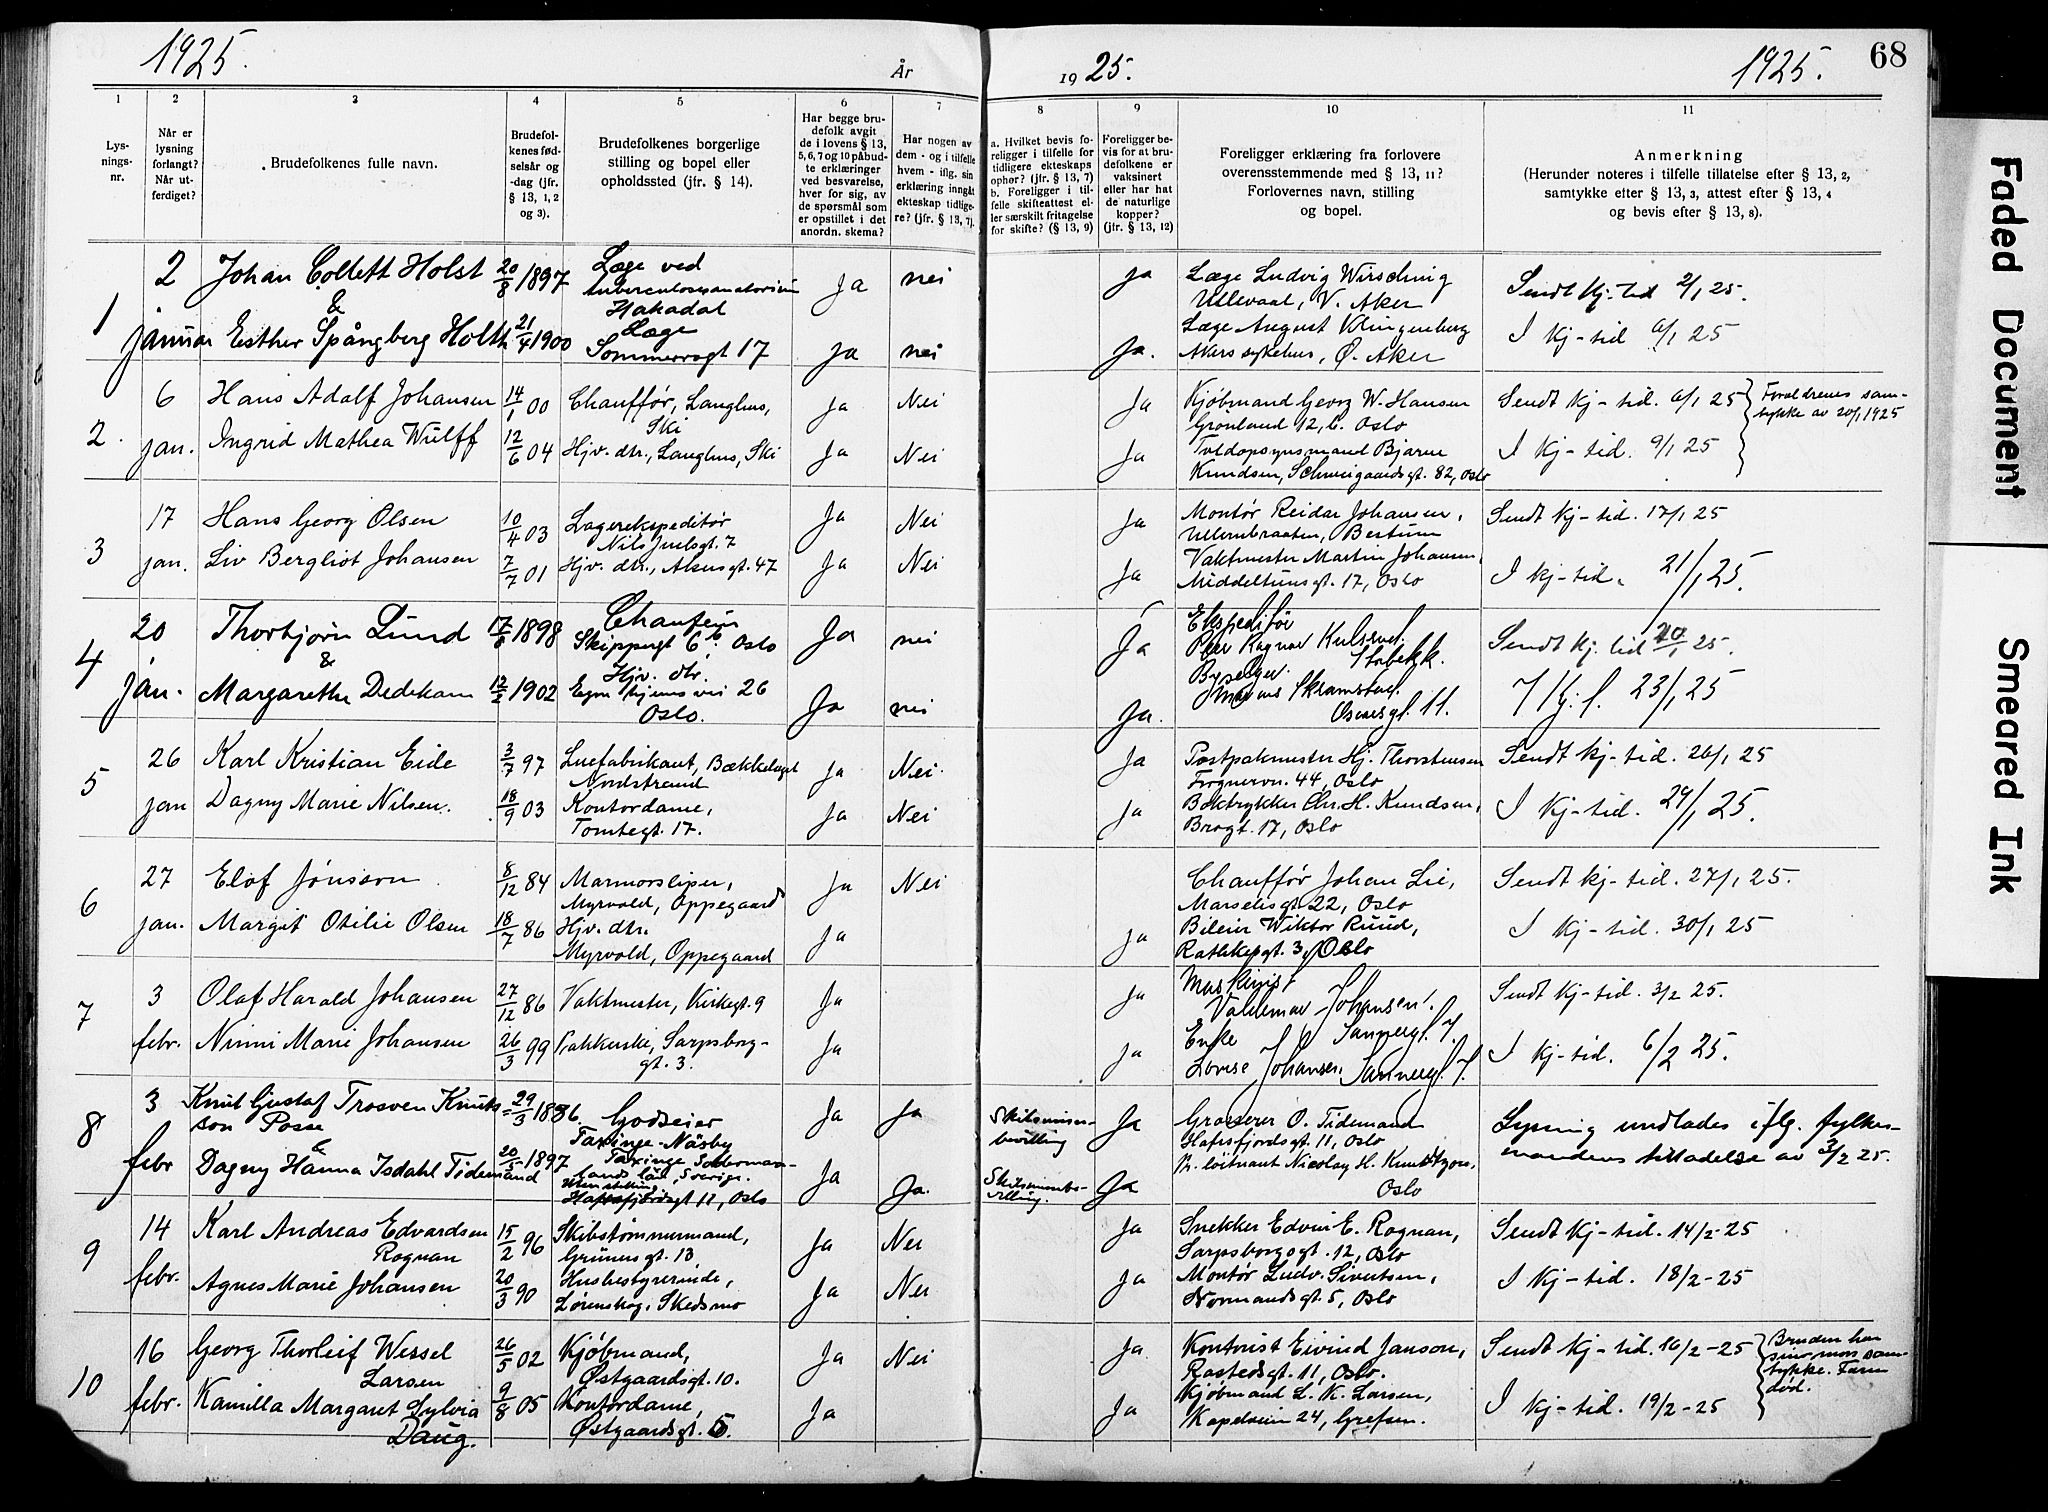 1925.
År
19 25.
1925.
68
1
2
3
4
5
6
7
8
9
10
11
Lys-
nings-
nr.
Når er
lysning
forlangt?
Når ut-
ferdiget?
Brudefolkenes fulle navn.
Brudefol-
kenes fød-
selsår og
-dag (jfr.
§ 13, 1, 2
og 3).
Brudefolkenes borgerlige
stilling og bopel eller
opholdssted (jfr. § 14).
Har begge bru-
defolk avgit
de i lovens § 13,
5, 6, 7 og 10 påbud-
te erklæringer
ved besvarelse,
hver for sig, av
de spørsmål som
er opstillet i det
anordn. skema?
Har nogen av
dem - og i tilfelle
hvem - iflg. sin
erklæring inngått
ekteskap tidlige-
re? (jfr. § 13, 7).
a. Hvilket bevis fo-
religger i tilfelle for
tidligere ekteskaps
ophør? (jfr. § 13, 7)
b. Foreligger i til-
felle skifteattest el-
ler særskilt fritagelse
for skifte? (§ 13, 9)
Foreligger be-
vis for at bru-
defolkene er
vaksinert
eller har hat
de naturlige
kopper?
(jfr. § 13, 12)
Foreligger erklæring fra forlovere
overensstemmende med § 13, 11?
Forlovernes navn, stilling
og bopel.
Anmerkning
(Herunder noteres i tilfelle tillatelse efter § 13, 2,
samtykke efter § 13, 3, attest efter § 13, 4
og bevis efter § 13, 8).
1
2 januar
Johan Collett Holst 20/8 1897
Læge ved
tuberculosesanatorium
Hakadal
Ja nei
ja
Læge Ludvig Wirsching
Ullevaal, V. Aker
Sendt kj-tid 2/1 25.
&
Esther Spångberg Holth 21/4 1900
Læge
Sommerrogt 17
Ja nei
Ja.
Læge August Klingenberg
Akers sykehus, Ø. Aker
I kj-tid 6/1 25
2.
6 jan.
Hans Adolf Johansen 14/1 00
Chauffør, Langhus,
Ski
ja Nei
Ja
Kjøbmand Georg W. Hansen
Grønland 12, C. Oslo
Sendt kj-tid. 6/1 25
Foreldrenes sam-
tykke av 20/1 1925
Ingrid Mathea Wulff 12/6 04
Hjv. dtr., Langhus, Ski
Ja Nei
Ja
Toldopsynsmand Bjarne
Knudsen, Schweigaardsgt. 82, Oslo
I kj-tid. 9/1 25
3
17 jan.
Hans Georg Olsen 10/4 03
Lagerekspeditør
Nils Juelsgt. 7
Ja Nei
Ja
Montør Reidar Johansen,
Ullernbraaten, Bestum
Sendt kj-tid. 17/1 25
Liv Bergliot Johansen 7/7 01
Hjv. dtr., Akersgt. 47
Ja Nei
Ja
Vaktmester Martin Johansen,
Middeltunsgt. 17, Oslo
I kj-tid. 21/1 25.
4
20 jan.
Thorbjørn Lund 17/8 1898
Chaufeur
Skippergt 6b. Oslo
Ja nei
Ja
Ekspeditør
Per Ragnar
Stabekk.
Sendt kj. tid 20/1 25.
&
Margarethe Dedekam 12/2 1902
Hjv. dtr.
26
Oslo.
Ja nei
Ja.
Byselger
Magnus Skramstad.
Oscarsgt. 11.
I kj. t. 23/1 25
5
26 jan
Karl Kristian Eide 3/7 97
Luefabrikant, Bækkelaget
Nordstrand
ja Nei.
Ja
Postpakmester Hj. Thorstensen
Frognervn. 44, Oslo
Sendt kj-tid. 26/1 25
Dagny Marie Nilsen. 18/9 03
Kontordame,
Tomtegt. 17.
Ja Nei
Ja
Boktrykker Chr. H. Knudsen,
Brogt. 17, Oslo
I kj-tid. 29/1 25.
6
27 jan.
Elof Jonsson 8/12 84
Marmorsliper,
Myrvold, Oppegaard
Ja Nei
Chauffør Johan Lie,
Marselisgt. 22, Oslo
Sendt kj-tid. 27/1 25.
Margit Otilie Olsen 18/7 86
Hjv. dtr.
Myrvold, Oppegaard
Ja
Ja
Bileier Wiktor Ruud,
Rathkesgt. 3, Oslo
I kj-tid. 30/1 25
7
3 febr.
Olaf Harald Johansen 27/12 86
Vaktmester, Kirkegt. 9
Ja
Ja
Maskinist
Valdemar Johansen.
Sannergt. 7.
Sendt kj-tid. 3/2 25.
Ninni Marie Johansen 26/3 99
Pakkerske, Sarpsborg-
gt. 3.
Ja
Ja
Enke
Lovise Johansen, Sannergt. 7.
I kj-tid. 6/2 25.
8
3 febr
Knut Gustaf Trosven Knuts-
son Posse 29/3 1886
Godseier
Taxinge-Näsby
Taxinge Söderman-
lands län, Sverige.
Ja Ja
Skilsmisse-
bevilling
Ja
Grosserer O. Tidemand
Hafrsfjordsgt. 11, Oslo
Lysning undlades iflg. fylkes-
mandens tilladelse av 3/2 25.
&
Dagny Hanna Isdahl Tidemand 20/5 1897
Uten stilling
Hafrsfjordsgt 11, Oslo
Ja Ja.
Skilsmissebe-
villing.
Ja
Pr. løitnant Nicolay H. Knudtzon,
Oslo
9
14 febr.
Karl Andreas Edvardsen
Rognan 15/2 96
Skibstømmermand,
Grünersgt. 13,
Ja Nei
Ja
Snekker Edvin E. Rognan,
Sarpsborgsgt. 12, Oslo
Sendt kj-tid. 14/2-25
Agnes Marie Johansen 20/3 90
Husbestyrerinde,
Lørenskog, Skedsmo
Ja Nei
Ja
Montør Ludv. Sivertsen,
Normandsgt. 5, Oslo
I kj-tid. 18/2-25
10
16 febr.
Georg Thorleif Wessel
Larsen 26/5 02
Kjøbmand,
Østgaardsgt. 10.
Ja Nei
Ja
Kontorist Eivind Janson,
Rostedsgt. 11, Oslo.
Sendt kj-tid. 16/2-25
Bruden har
sin mors sam-
tykke. Faren
død.
Kamilla Margaret Sylvia
Daug. 9/8 05
Kontordame,
Østgaardsgt. 5.
Ja
Ja
Kjøbmand L. K. Larsen,
Kapelveien 24, Grefsen.
I kj-tid. 19/2-25
Faded Document
Smeared Ink